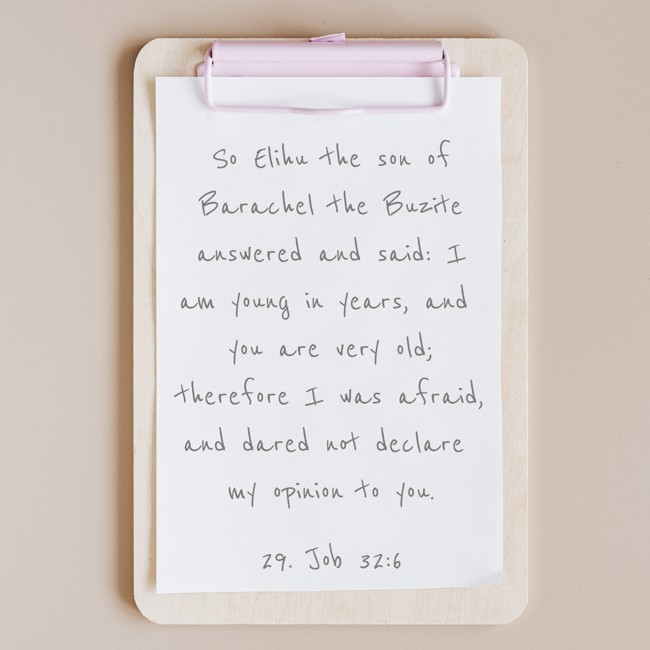 So Elihu the son of
Barachel the Buzite
answered and said: I
am young in years, and
you are very old;
therefore I was afraid,
and dared not declare
my opinion to you.
29. Job 32:6